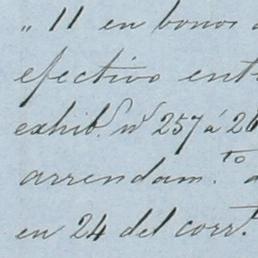 „ 11 en bonos
efectivo ent
exhib.ⁿ nº 257 á 26
arrendam.to
en 24 del corr.te